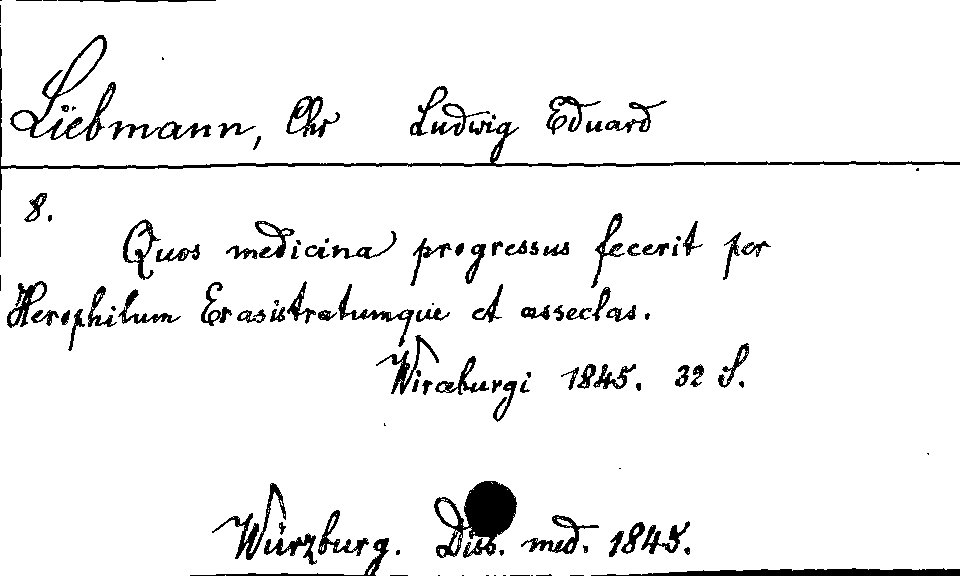 Liebmann, Chr Ludwig Eduard
8.
Quos medicina progressus fecerit per
Herophilum Erasistratumque et asseclas.
Wirceburgi 1845. 32 S.
Würzburg. Diss. med. 1845.